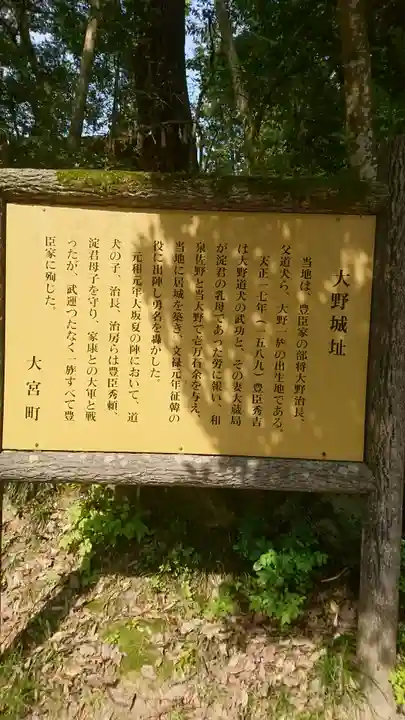 大野城址
当地は、豊臣家の部将大野治長、
父道犬ら、大野一族の出生地である。
天正一七年(一五八九)豊臣秀吉
は大野道犬の武功と、その妻大蔵局
が淀君の乳母であった労に報い、和
泉佐野と当大野で壱万石余を与え、
当地に居城を築き、文禄元年征韓の
役に出陣し勇名を轟かした。
元和元年大坂夏の陣において、道
犬の子、治長、治房らは豊臣秀頼、
淀君母子を守り、家康との大軍と戦
ったが、武運つたなく一族すべて豊
臣家に殉じた。
大宮町